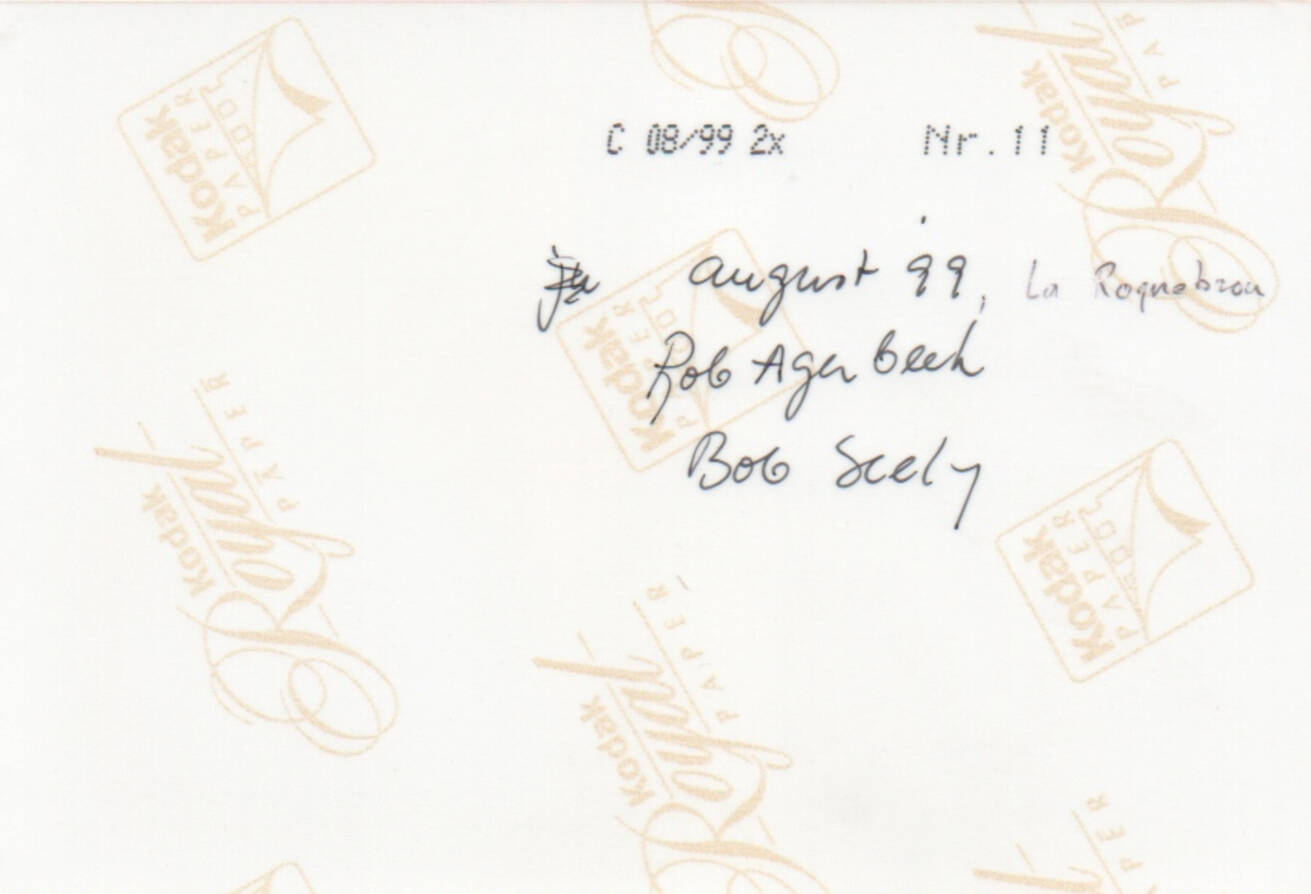 C 08/99 2x Nr. 11
august 99, La Roquebrou
Rob Agerbeek
Bob Seely
Kodak PAPER
Kodak Royal PAPER
Kodak PAPER
Kodak PAPER
Kodak Royal PAPER
Kodak PAPER
Kodak Royal PAPER
PER